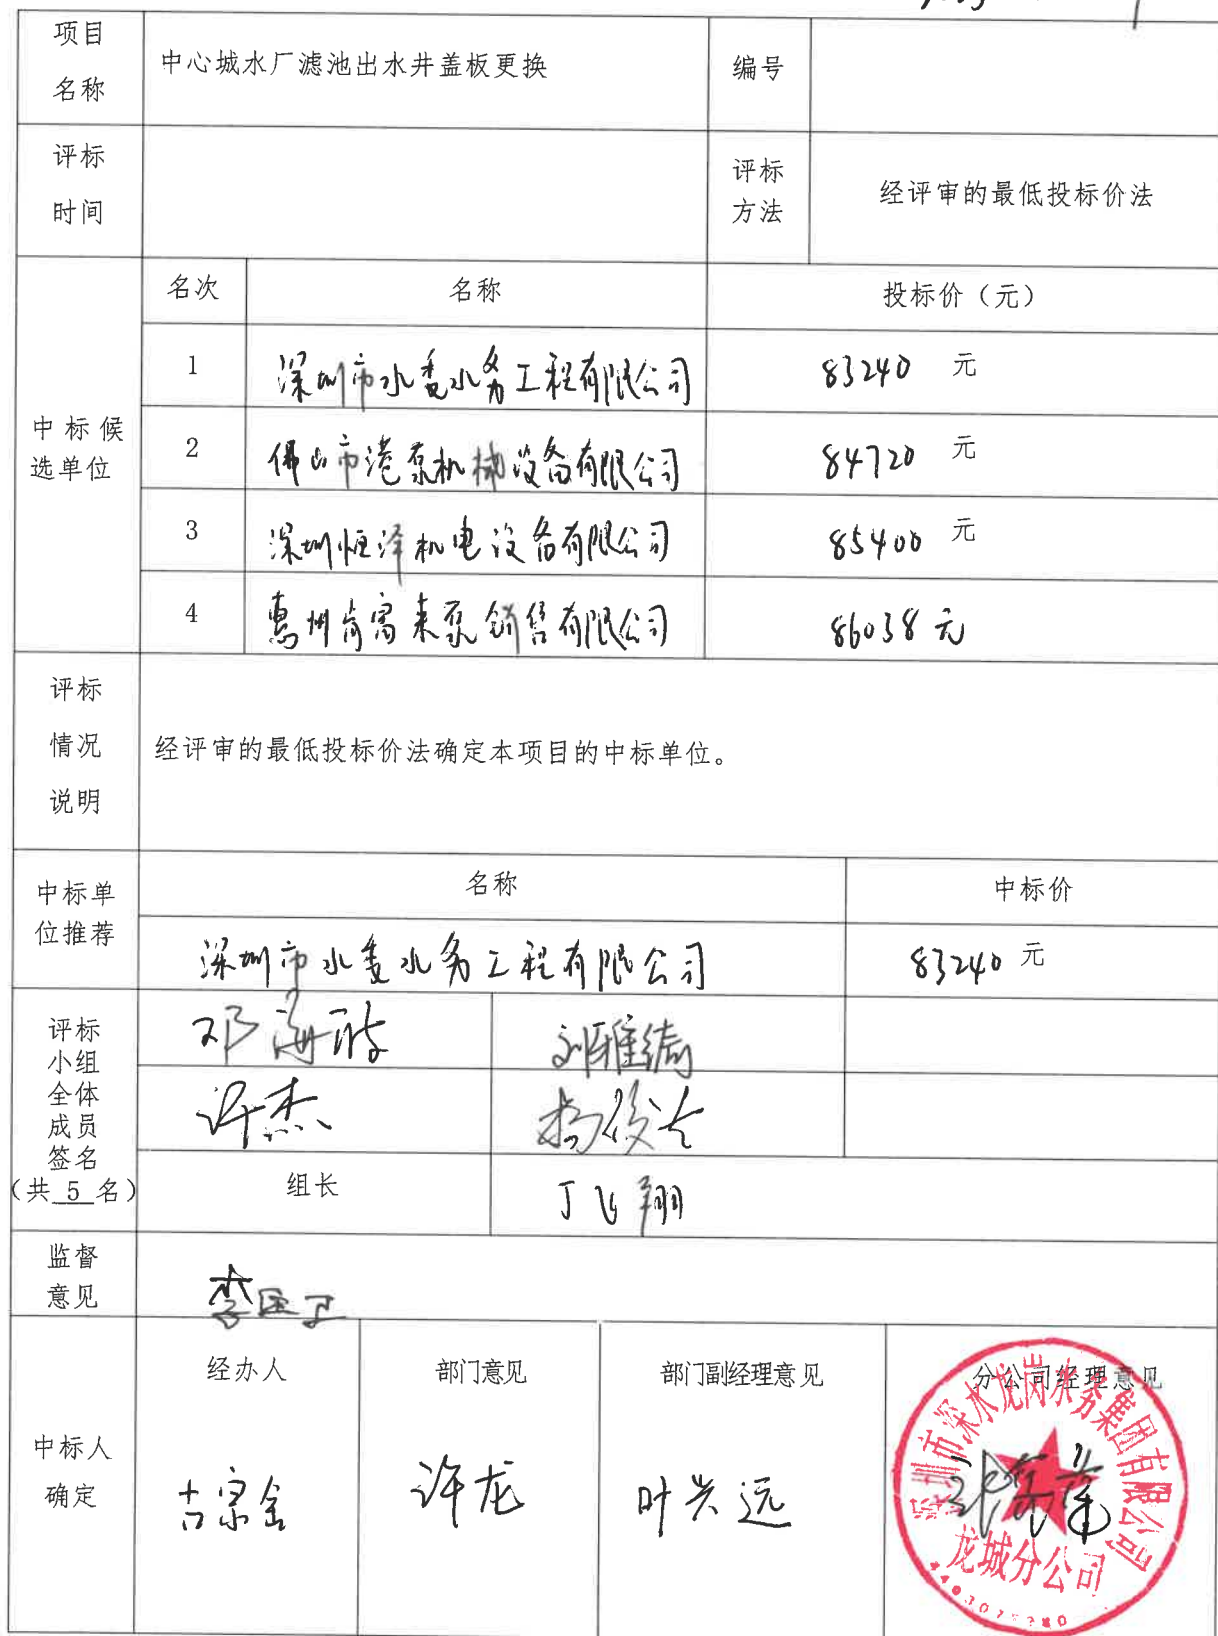 项目
名称
中心城水厂滤池出水井盖板更换
编号
评标
时间
评标
方法
经评审的最低投标价法
中标候
选单位
名次 名称 投标价（元）
1 深圳市水务工程有限公司 83240 元
2 佛山市港泵机械设备有限公司 84720 元
3 深圳恒泽机电设备有限公司 85400 元
4 惠州肯富来泵销售有限公司 86038元
评标
情况
说明
经评审的最低投标价法确定本项目的中标单位。
中标单
位推荐
名称 中标价
深圳市水务工程有限公司 83240 元
评标
小组
全体
成员
签名
（共 5 名）
邓海 刘雅绮
许杰 杨俊
组长 丁飞翔
监督
意见
李
中标人
确定
经办人 部门意见 部门副经理意见 分公司经理意见
古宗金 许龙 叶兴远
深圳市深水龙岗水务集团有限公司
龙城分公司